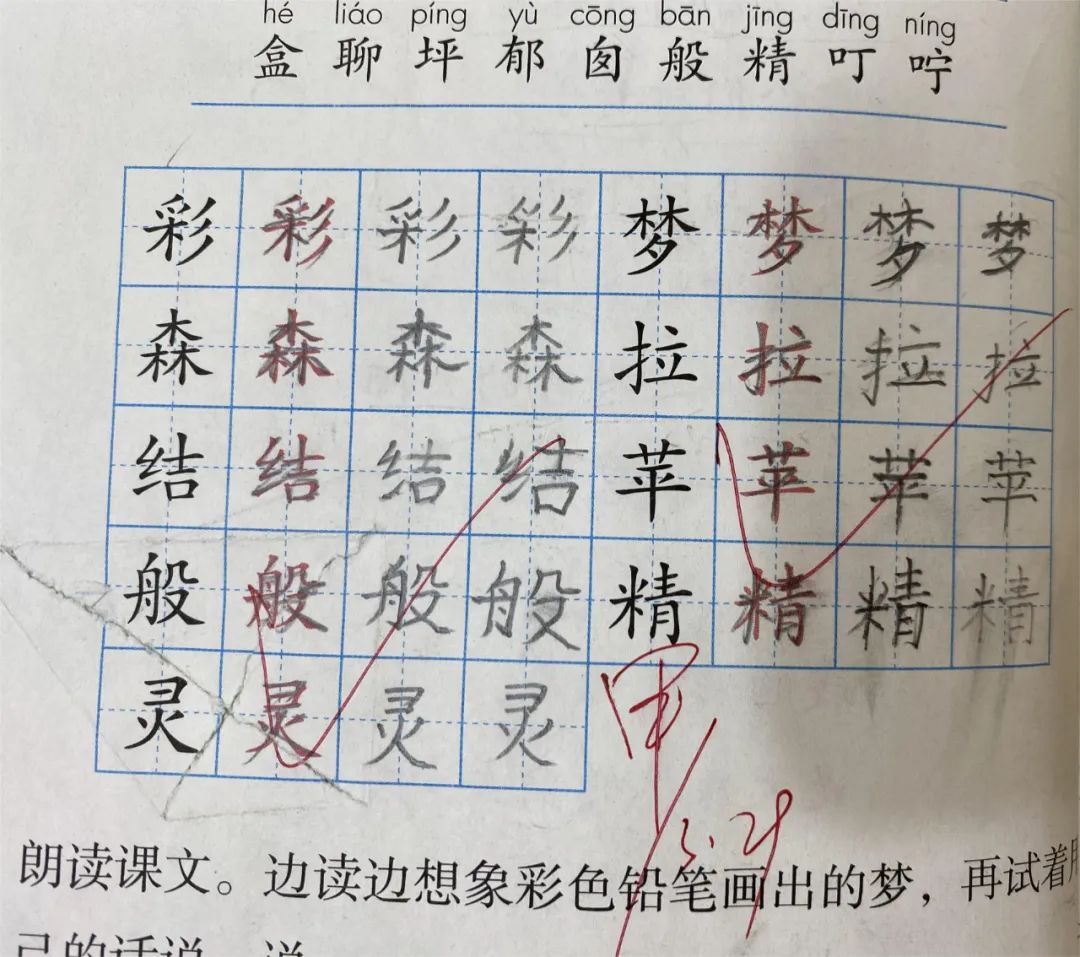 hé liáo píng yù cōng bān jīng dīng níng
盒 聊 坪 郁 囱 般 精 叮 咛
彩 彩 彩 彩 梦 梦 梦 梦
森 森 森 森 拉 拉 拉 拉
结 结 结 结 苹 苹 苹 苹
般 般 般 般 精 精 精 精
灵 灵 灵 灵
朗读课文。边读边想象彩色铅笔画出的梦，再试着
己的话说一说